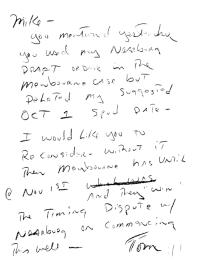 Mike -
you mentioned yesterday
you used my Nearburg
Draft order in the
Mewbourne case but
Deleted my suggested
OCT 1 Spud Date -
I would like you to
Reconsider - without it
Then Mewbourne has until
@ Nov 1ST which was And they win
The Timing Dispute w/
Nearburg on Commencing
This well -
Tom